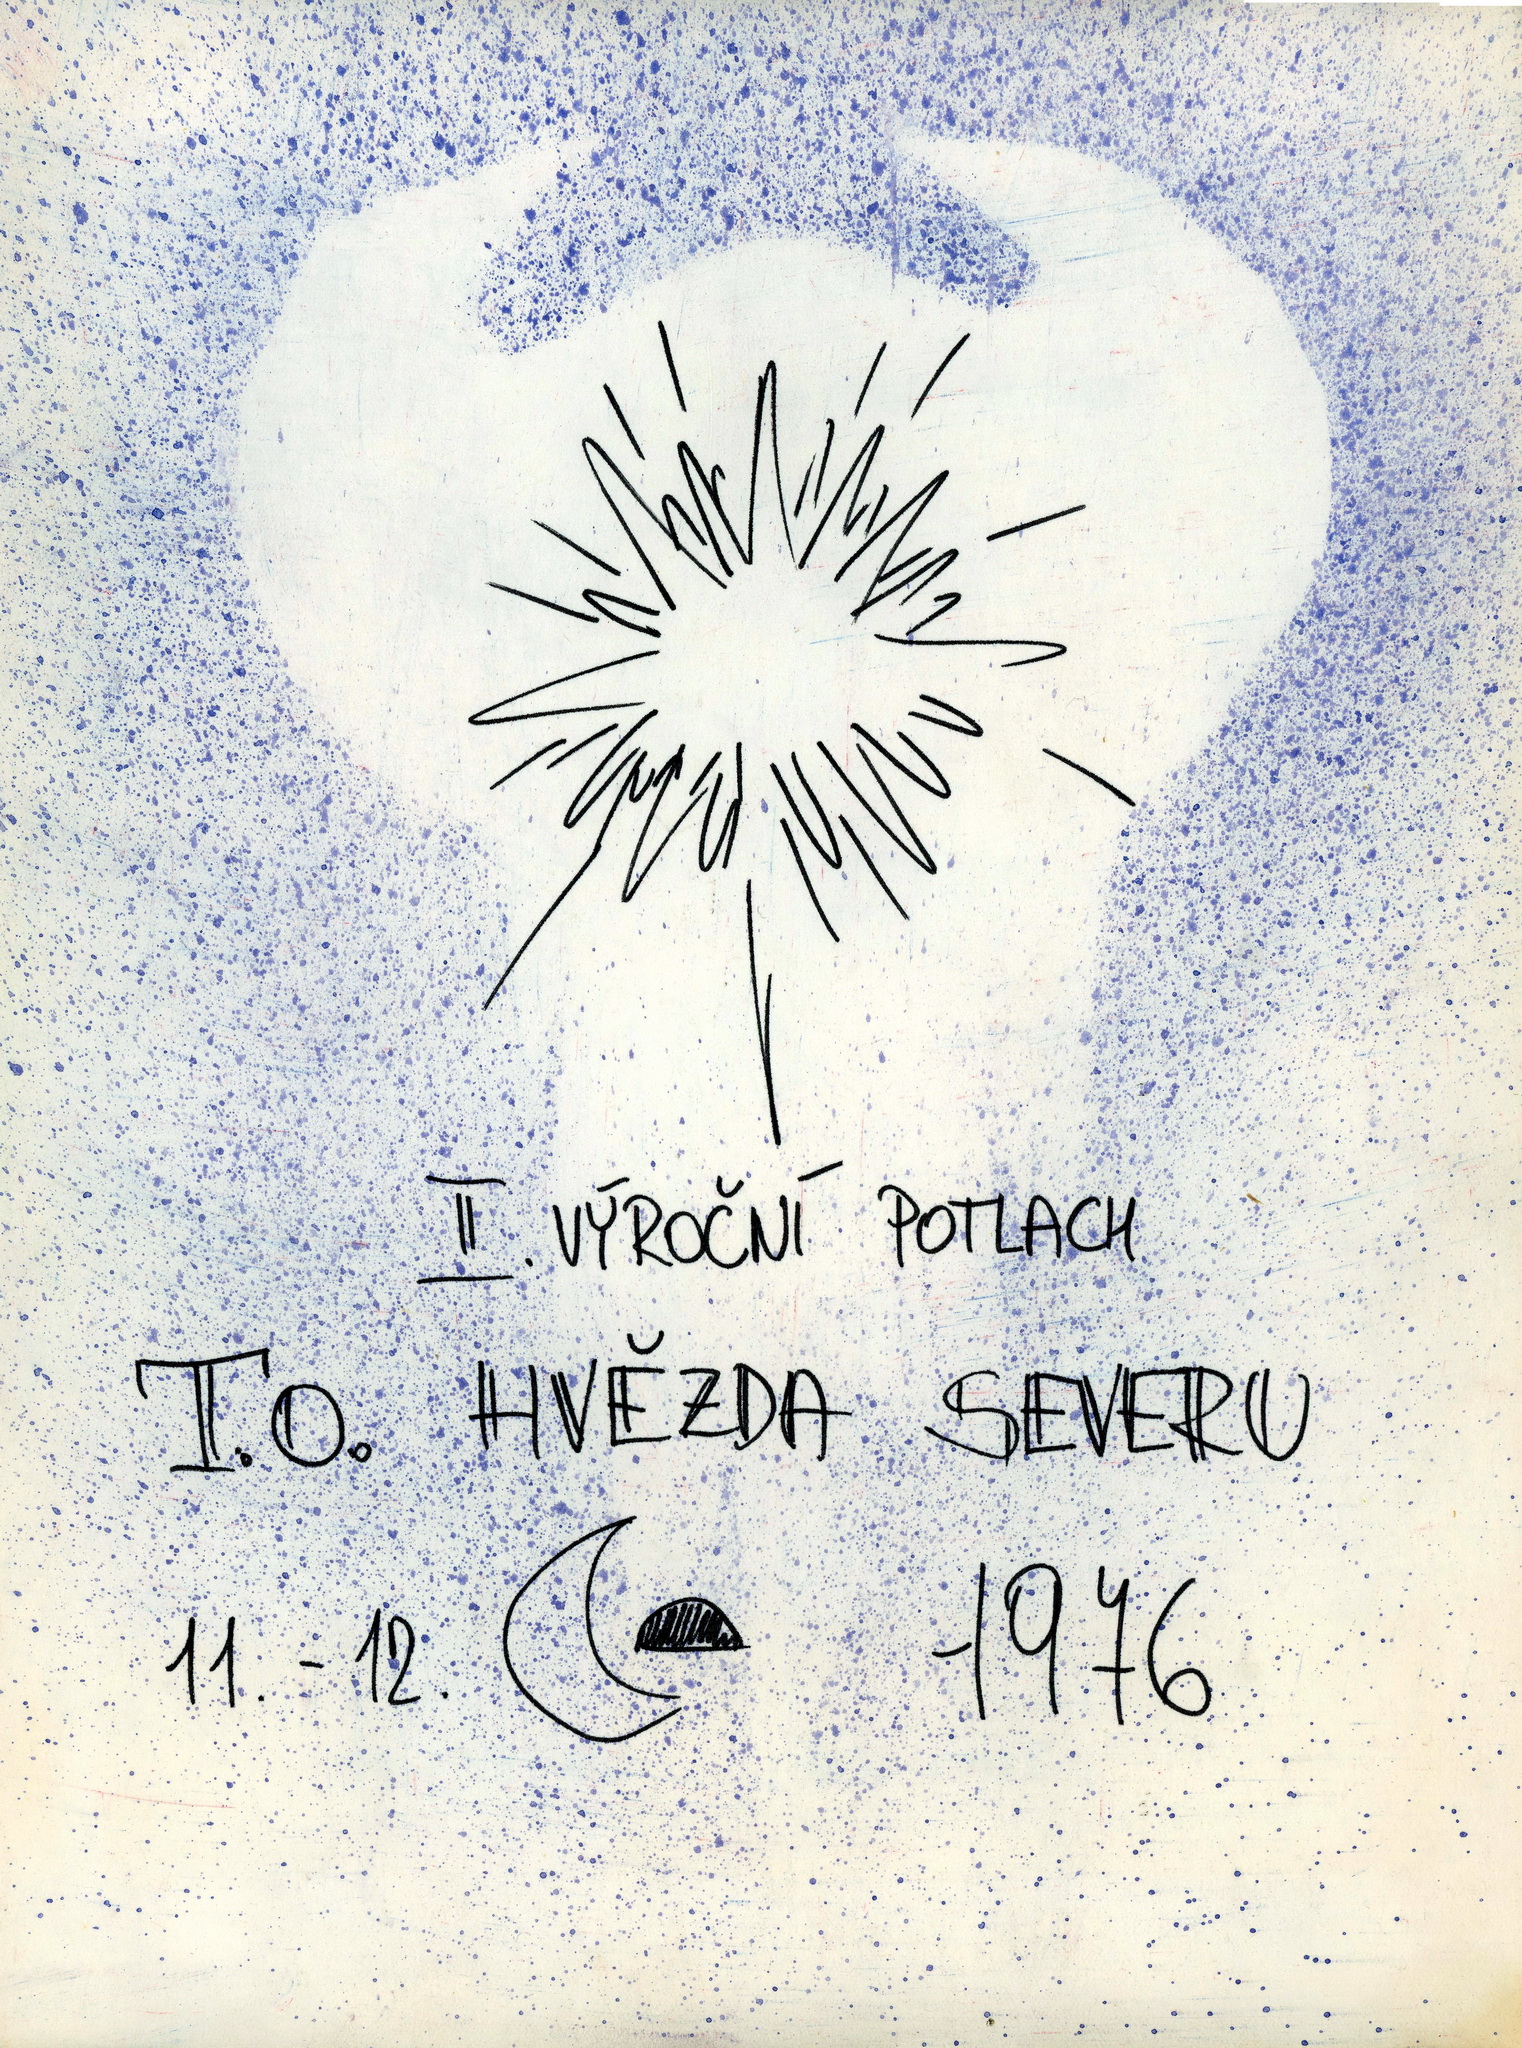 II. VÝROČNÍ POTLACH
T.O. HVĚZDA SEVERU
11. - 12. 1976